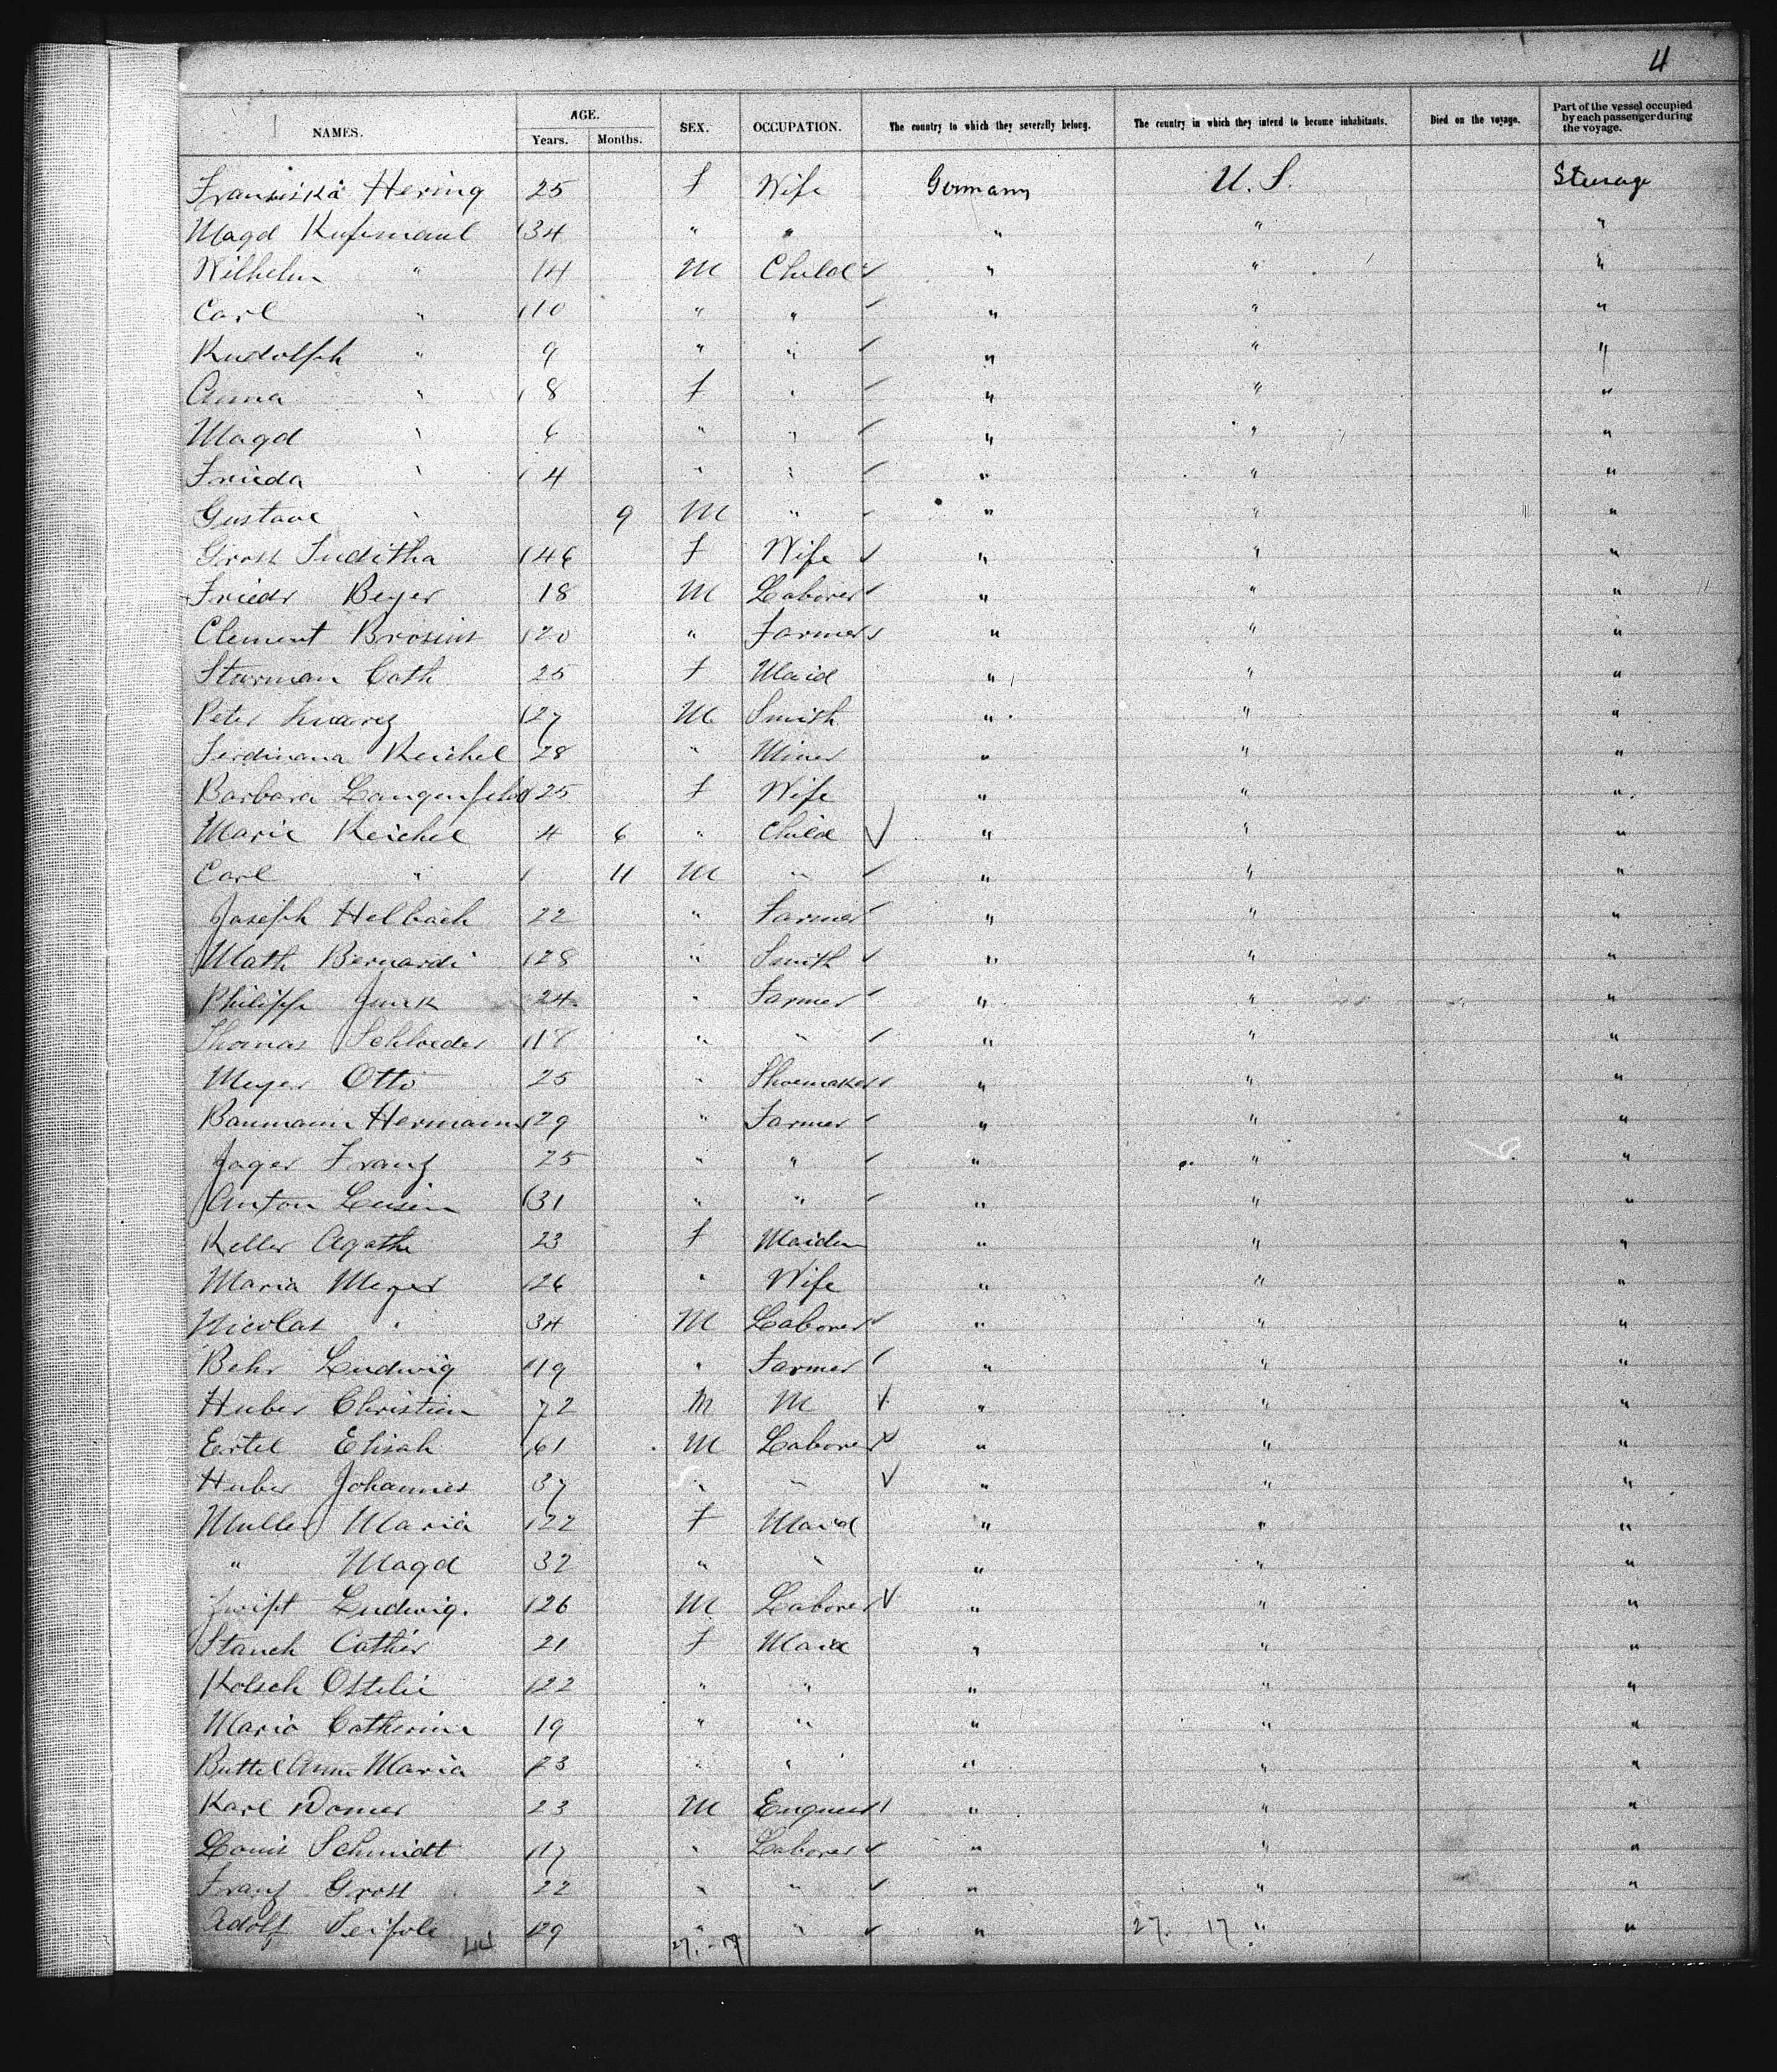 4
NAMES. AGE. Years. Months. SEX. OCCUPATION. The country to which they severally belong. The country in which they intend to become inhabitants. Died on the voyage. Part of the vessel occupied by each passenger during the voyage.
Franziska Hering 25 F Wife Germany U.S. Steerage
Magd Kussmaul 34 " " " " "
Wilhelm " 14 M Child " " "
Carl " 10 " " " " "
Rudolph " 9 " " " " "
Anna " 8 F " " " "
Magd " 6 " " " " "
Frieda " 4 " " " " "
Gustave " 9 M " " " "
Gross Juditha 46 F Wife " " "
Friedr Beyer 18 M Laborer " " "
Clement Brosius 20 " Farmer " " "
Starman Cath 25 F Maid " " "
Peter 27 M Smith " " "
Ferdinand Reichel 28 " Miner " " "
Barbara Langenfeld 25 F Wife " " "
Marie Reichel 4 6 " Child " " "
Carl " 11 M " " " "
Joseph Helbach 22 " Farmer " " "
Math Bernardi 28 " Smith " " "
Philipp Junk 24 " Farmer " " "
Thomas Schloeder 18 " " " " "
Meyer Otto 25 " Shoemaker " " "
Baumann Hermann 29 " Farmer " " "
Jager Franz 25 " " " " "
Anton 31 " " " " "
Keller Agathe 23 F Maiden " " "
Maria Meyer 26 " Wife " " "
Nicolas " 34 M Laborer " " "
Behr Ludwig 19 " Farmer " " "
Huber Christian 72 M M " " "
Ertel Elisah 61 M Laborer " " "
Huber Johannes 37 " " " " "
Muller Maria 22 F Maid " " "
" Magd 32 " " " " "
Ludwig. 26 M Laborer " " "
Stauch Cather 21 F Maid " " "
Kolsch Ottilie 22 " " " " "
Maria Catherine 19 " " " " "
Buttel Anna Maria 23 " " " " "
Karl Domer 23 M Engineer " " "
Louis Schmidt 17 " Laborer " " "
Franz Gross 22 " " " " "
Adolf Seipole 29 " " " " "
44 27.-17 27. 17